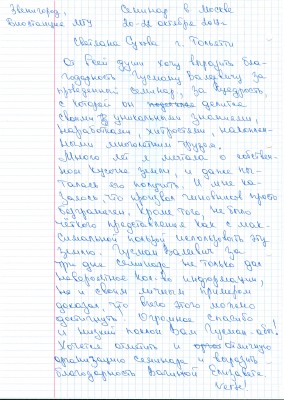 Звенигород, Семинар в Москве
Биостанция МГУ 20-22 октября 2012г.
Светлана Сухова г. Тольятти
От всей души хочу выразить бла-
годарность Гусману Валеевичу за
проведенный семинар, за щедрость,
с которой он делится
своими уникальными знаниями,
наработками, хитростями, накоплен-
ными многолетним трудом.
Много лет я мечтала о собствен-
ном кусочке земли, и даже пы-
талась его получить. И мне ка-
залось, что произвол чиновников просто
безграничен. Кроме того, не было
чёткого представления как с мак-
симальной пользой использовать эту
землю. Гусман Валеевич за
три дня семинара не только дал
невероятное кол-во информации,
но и своим личным примером
доказал, что всего этого можно
достигнуть. Огромное спасибо
и низкий поклон Вам Гусман-абы!
Хочется отметить и отличную
организацию семинара и выразить
благодарность Елизавете